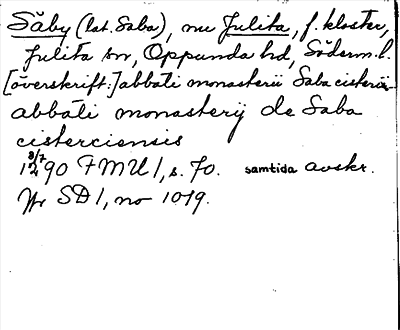 Säby (lat. Saba), nu Julita, f. kloster,
Julita sn, Oppunda hd, Söderm. l.
[överskrift:] abbati monasterii Saba cisterci-
abbati monasterij de Saba
cisterciensis
8/7
1290 FMU 1, s. 70. samtida avskr.
Tr SD 1, no 1019.